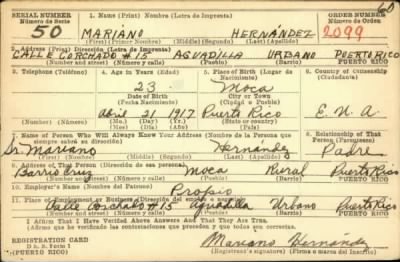 60
SERIAL NUMBER 1. Name (Print) Nombre (Letra de Imprenta) ORDER NUMBER
Número de Serie Número de Orden
50 MARIANO HERNANDEZ 2099
(First) (Primer Nombre) (Middle) (Segundo) (Last) (Apellido)
2. Address (Print) Dirección (Letra de Imprenta)
CALLE CORCHADO #15 AGUADILLA URBANO PUERTO RICO
(Number and street) (Número y calle) (Town) (Pueblo) (Barrio) PUERTO RICO
3. Telephone (Teléfono) 4. Age in Years (Edad) 5. Place of Birth (Lugar de Nacimiento) 6. Country of Citizenship (Ciudadanía)
23 Moca
Date of Birth (Fecha Nacimiento) City or Town (Ciudad o Pueblo)
abril 21 1917 Puerto Rico E. U. A.
(Mo.) (Day) (Yr.) (Country) (País)
7. Name of Person Who Will Always Know Your Address (Nombre de la Persona que siempre sabrá su dirección) 8. Relationship of That Person (Parentesco)
Sr. Mariano Hernández Padre
(First) (Primer Nombre) (Middle) (Segundo) (Last) (Apellido)
9. Address of That Person (Dirección de esa persona)
Barrio Cruz Moca Rural Puerto Rico
(Number and street) (Número y calle) (Town) (Pueblo) (Barrio) PUERTO RICO
10. Employer's Name (Nombre del Patrono)
Propio
11. Place of Employment or Business (Dirección del empleo o negocio)
Calle Corchado #15 Aguadilla Urbano Puerto Rico
(Number and street) (Número y calle) (Town) (Pueblo) (Barrio) PUERTO RICO
I Affirm That I Have Verified Above Answers And That They Are True.
(Afirmo que he verificado las contestaciones que anteceden y que son ciertas)
REGISTRATION CARD
D. S. S. Form 1
(PUERTO RICO)
Mariano Hernández
(Registrant's signature) (Firma o marca del inscrito)